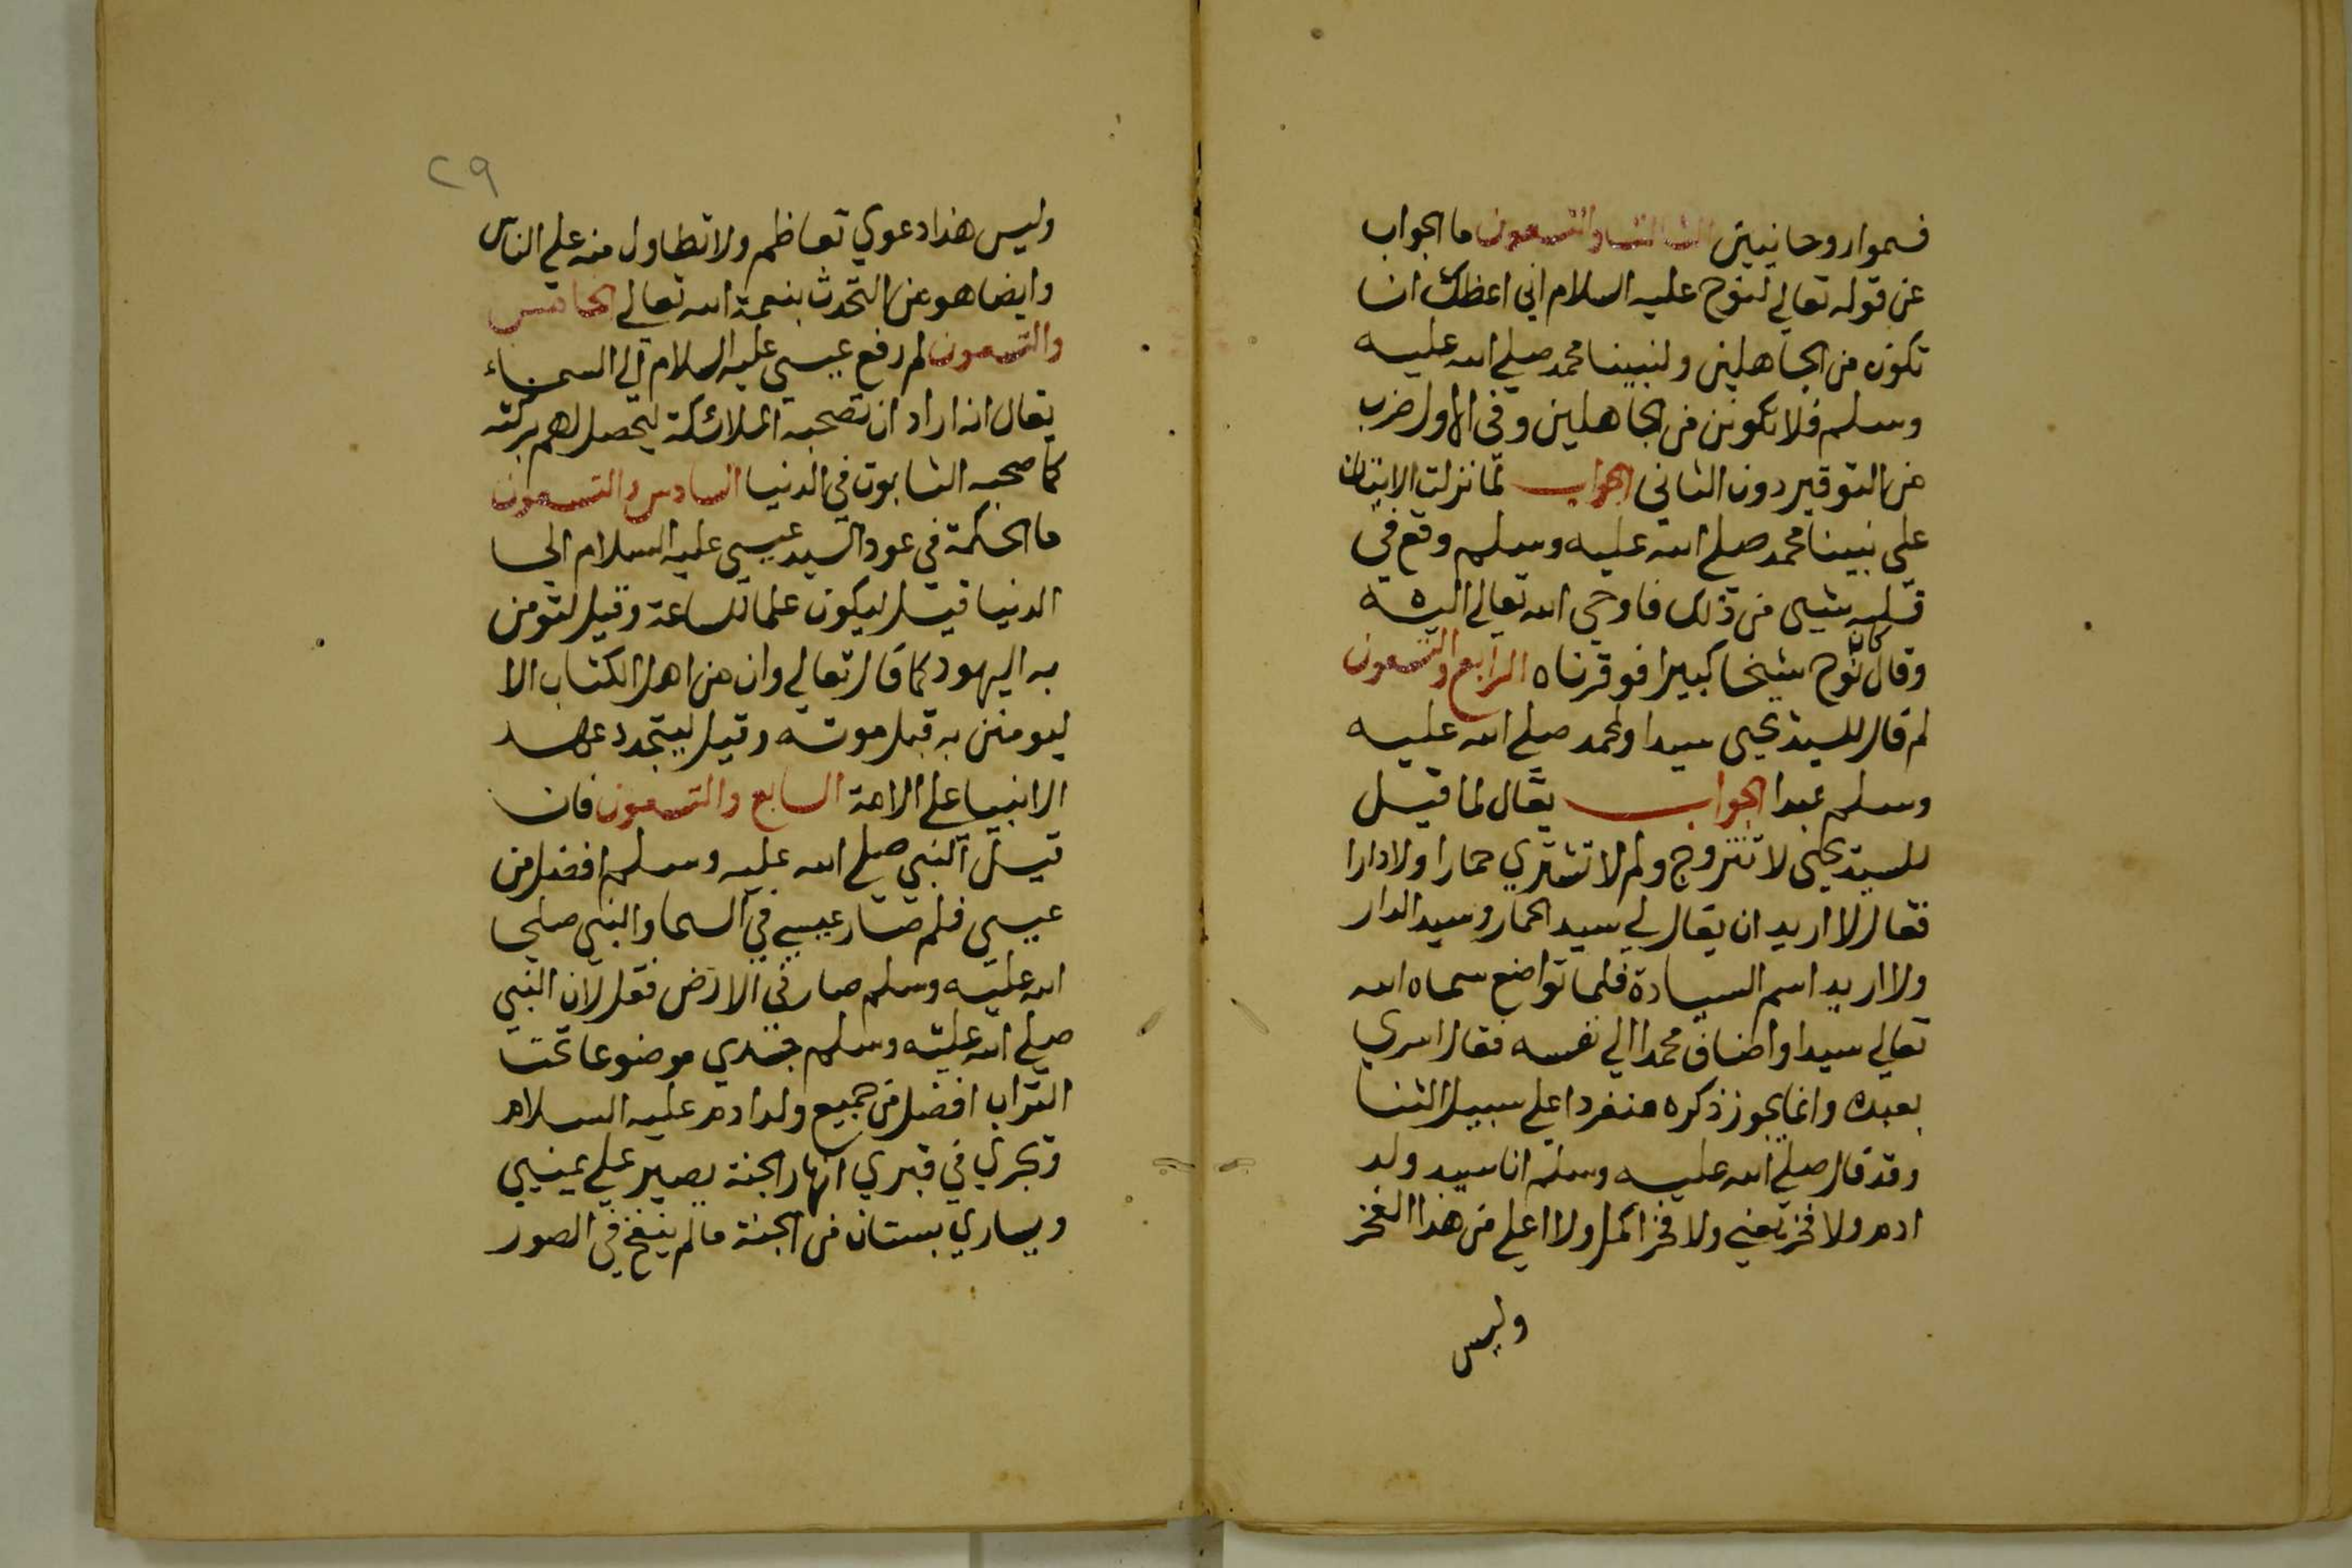 فسموا روحانيين الثالث والتسعون ما الجواب
عن قوله تعالي لنوح عليه السلام اني اعظك ان
تكون من الجاهلين ولنبينا محمد صلي الله عليه
وسلم فلا تكونن من الجاهلين وفي الاول ضرب
من التوقير دون الثاني الجواب لما نزلت الايتان
علي نبينا محمد صلي الله عليه وسلم وقع في
قلبه شيي من ذلك فاوحي الله تعالي اليه
وقال كان نوح شيخا كبيرا فوقرناه الرابع والتسعون
لم قال للسيد يحيي سيدا ولمحمد صلي الله عليه
وسلم عبدا الجواب يقال لما قيل
للسيد يحيي لا تتزوج ولم لا تشتري حمارا ولا دارا
فقال لا اريد ان يقال لي سيد الحمار وسيد الدار
ولا اريد اسم السيادة فلما تواضع سماه الله
تعالي سيدا واضاف محمدا الي نفسه فقال اسري
بعبده وانما يجوز ذكره منفردا علي سبيل الثنا
وقد قال صلي الله عليه وسلم انا سيد ولد
ادم ولا فخر يعني ولا فخر اكمل ولا اعلي من هذا الفخر
وليس
٢٩
وليس هذا دعوي تعاظم ولا تطاول منه علي الناس
وايضا هو من التحدث بنعمة الله تعالي الخامس
والتسعون لم رفع عيسي عليه السلام الي السماء
يقال انه اراد ان تصحبه الملائكة ليحصل لهم بركته
كما صحبه التايبون في الدنيا السادس والتسعون
ما الحكمة في عود السيد عيسي عليه السلام الي
الدنيا قيل ليكون علما للساعة وقيل لتومن
به اليهود كما قال تعالي وان من اهل الكتاب الا
ليومنن به قبل موته وقيل ليتجدد عهد
الانبيا علي الامة السابع والتسعون فان
قيل النبي صلي الله عليه وسلم افضل من
عيسي فلم صار عيسي في السما والنبي صلي
الله عليه وسلم صار في الارض فقل لان النبي
صلي الله عليه وسلم جسدي موضوعا تحت
التراب افضل من جميع ولد ادم عليه السلام
وتجري في قبري انهار الجنة يصير علي يميني
ويساري بستان من الجنة ما لم ينفخ في الصور